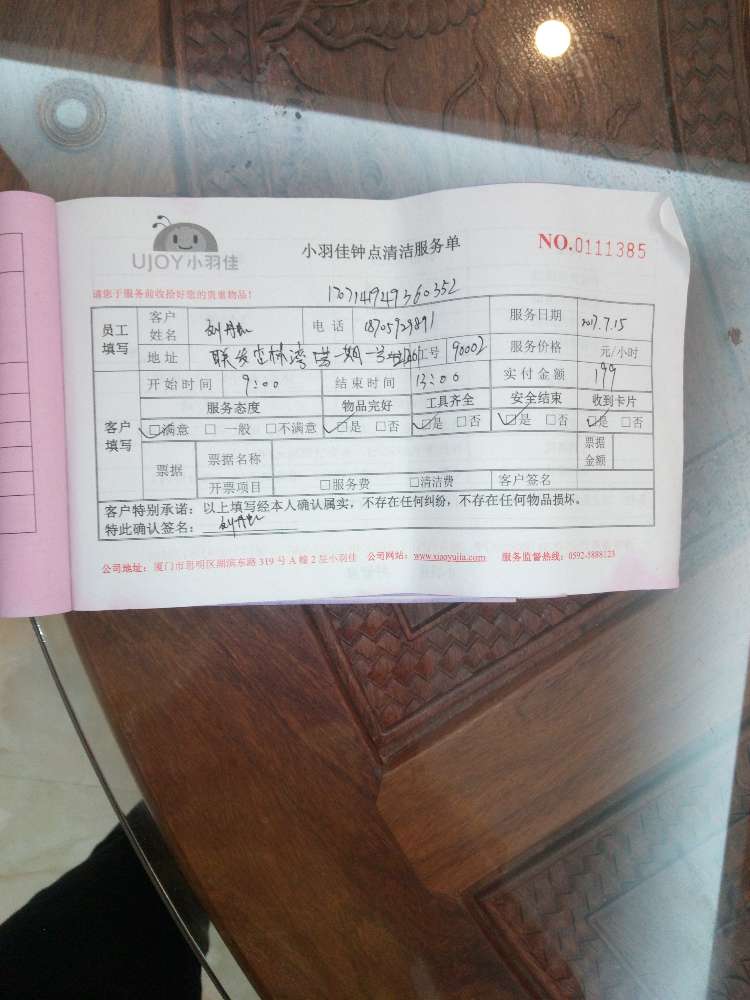 UJOY小羽佳
小羽佳钟点清洁服务单
NO.0111385
请您于服务前收拾好您的贵重物品!
170714949360352
员工填写 客户姓名 电话 18705929891 服务日期 2017.7.15
地址 联发杏林湾 一期一号 工号 90002 服务价格 元/小时
客户填写 开始时间 9:00 结束时间 13:00 实付金额 199
服务态度 物品完好 工具齐全 安全结束 收到卡片
☑满意 □一般 □不满意 ☑是 □否 ☑是 □否 ☑是 □否 ☑是 □否
票据 票据名称 票据金额
开票项目 □服务费 □清洁费 客户签名
客户特别承诺:以上填写经本人确认属实,不存在任何纠纷,不存在任何物品损坏。
特此确认签名:
公司地址:厦门市思明区湖滨东路 319 号 A 幢 2 层小羽佳 公司网站:www.xiaoyujia.com 服务监督热线:0592-5888123